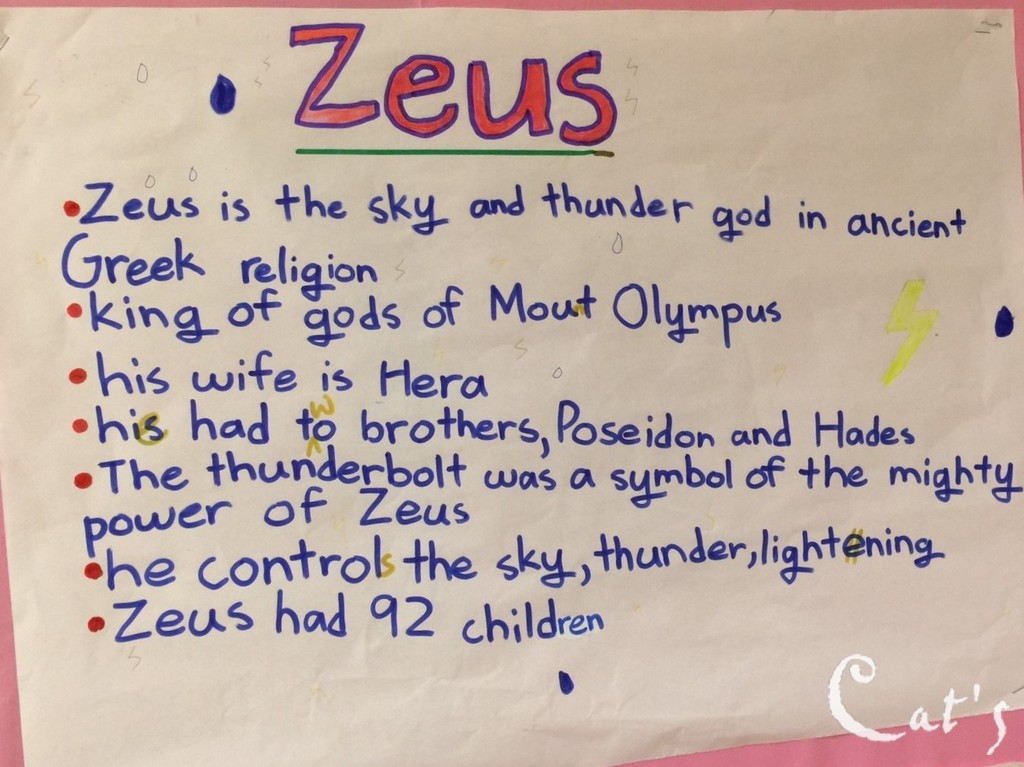 Zeus
•Zeus is the sky and thunder god in ancient
Greek religion
•king of gods of Mount Olympus
•his wife is Hera
•his had two brothers, Poseidon and Hades
•The thunderbolt was a symbol of the mighty
power of Zeus
•he controls the sky, thunder, lightening
•Zeus had 92 children
Cat's